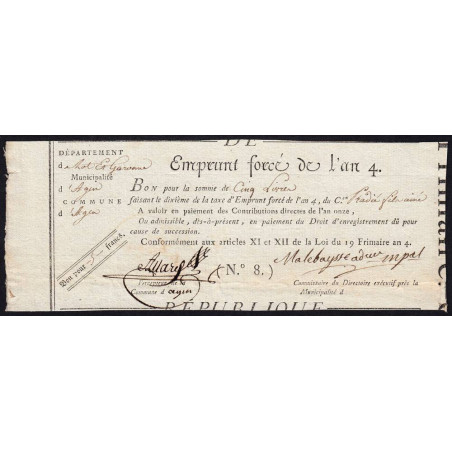 DE
DÉPARTEMENT
d Lot et Garonne
Municipalité
d'Agen
COMMUNE
d'Agen
Emprunt forcé de l'an 4.
BON pour la somme de Cinq Livres
faisant le dixième de la taxe d'Emprunt forcé de l'an 4, du C.en fils aîné
A valoir en paiement des Contributions directes de l'an onze,
Ou admissible, dès-à-présent, en paiement du Droit d'enregistrement dû pour
cause de succession.
Conformément aux articles XI et XII de la Loi du 19 Frimaire an 4.
Bon pour 5 francs.
(N.° 8.)
Percepteur de la
Commune d'agen
Commissaire du Directoire exécutif près la
Municipalité d
RÉPUBLIQUE